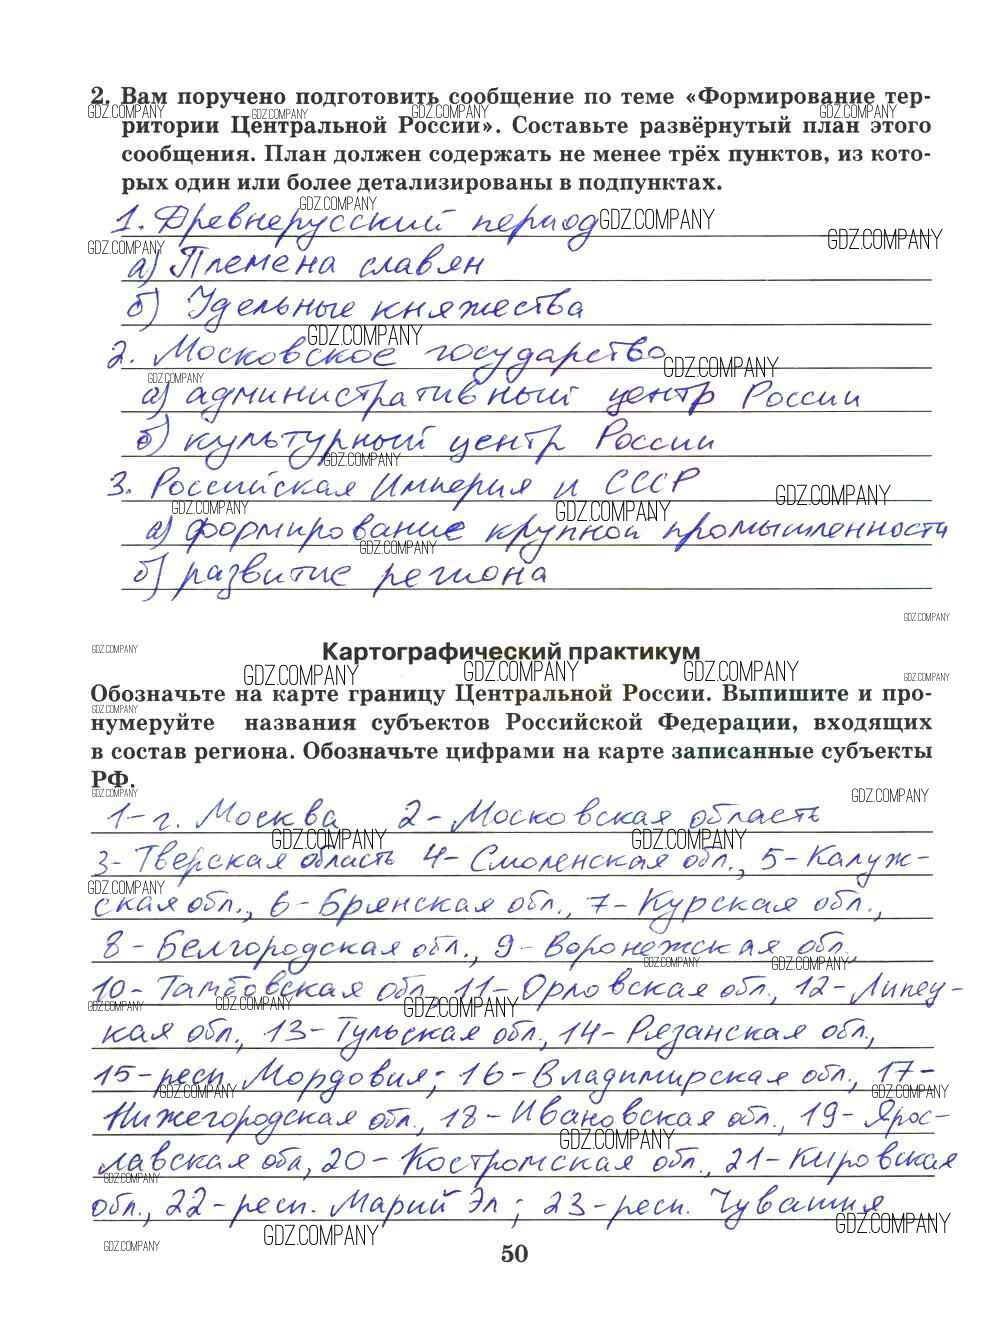 2. Вам поручено подготовить сообщение по теме «Формирование тер-
ритории Центральной России». Составьте развёрнутый план этого
сообщения. План должен содержать не менее трёх пунктов, из кото-
рых один или более детализированы в подпунктах.
1. Древнерусский период
а) Племена славян
б) Удельные княжества
2. Московское государство
а) административный центр России
б) культурный центр России
3. Российская Империя и СССР
а) формирование крупной промышленности
б) развитие региона
Картографический практикум
Обозначьте на карте границу Центральной России. Выпишите и про-
нумеруйте названия субъектов Российской Федерации, входящих
в состав региона. Обозначьте цифрами на карте записанные субъекты
РФ.
1-г. Москва 2-Московская область
3-Тверская область 4-Смоленская обл., 5-Калуж-
ская обл., 6-Брянская обл., 7-Курская обл.,
8-Белгородская обл., 9-Воронежская обл.,
10-Тамбовская обл., 11-Орловская обл., 12-Липец-
кая обл., 13-Тульская обл., 14-Рязанская обл.,
15-респ. Мордовия; 16-Владимирская обл., 17-
Нижегородская обл., 18-Ивановская обл., 19-Ярос-
лавская обл, 20-Костромская обл., 21-Кировская
обл., 22-респ. Марий Эл; 23-респ. Чувашия
50
GDZ.COMPANY